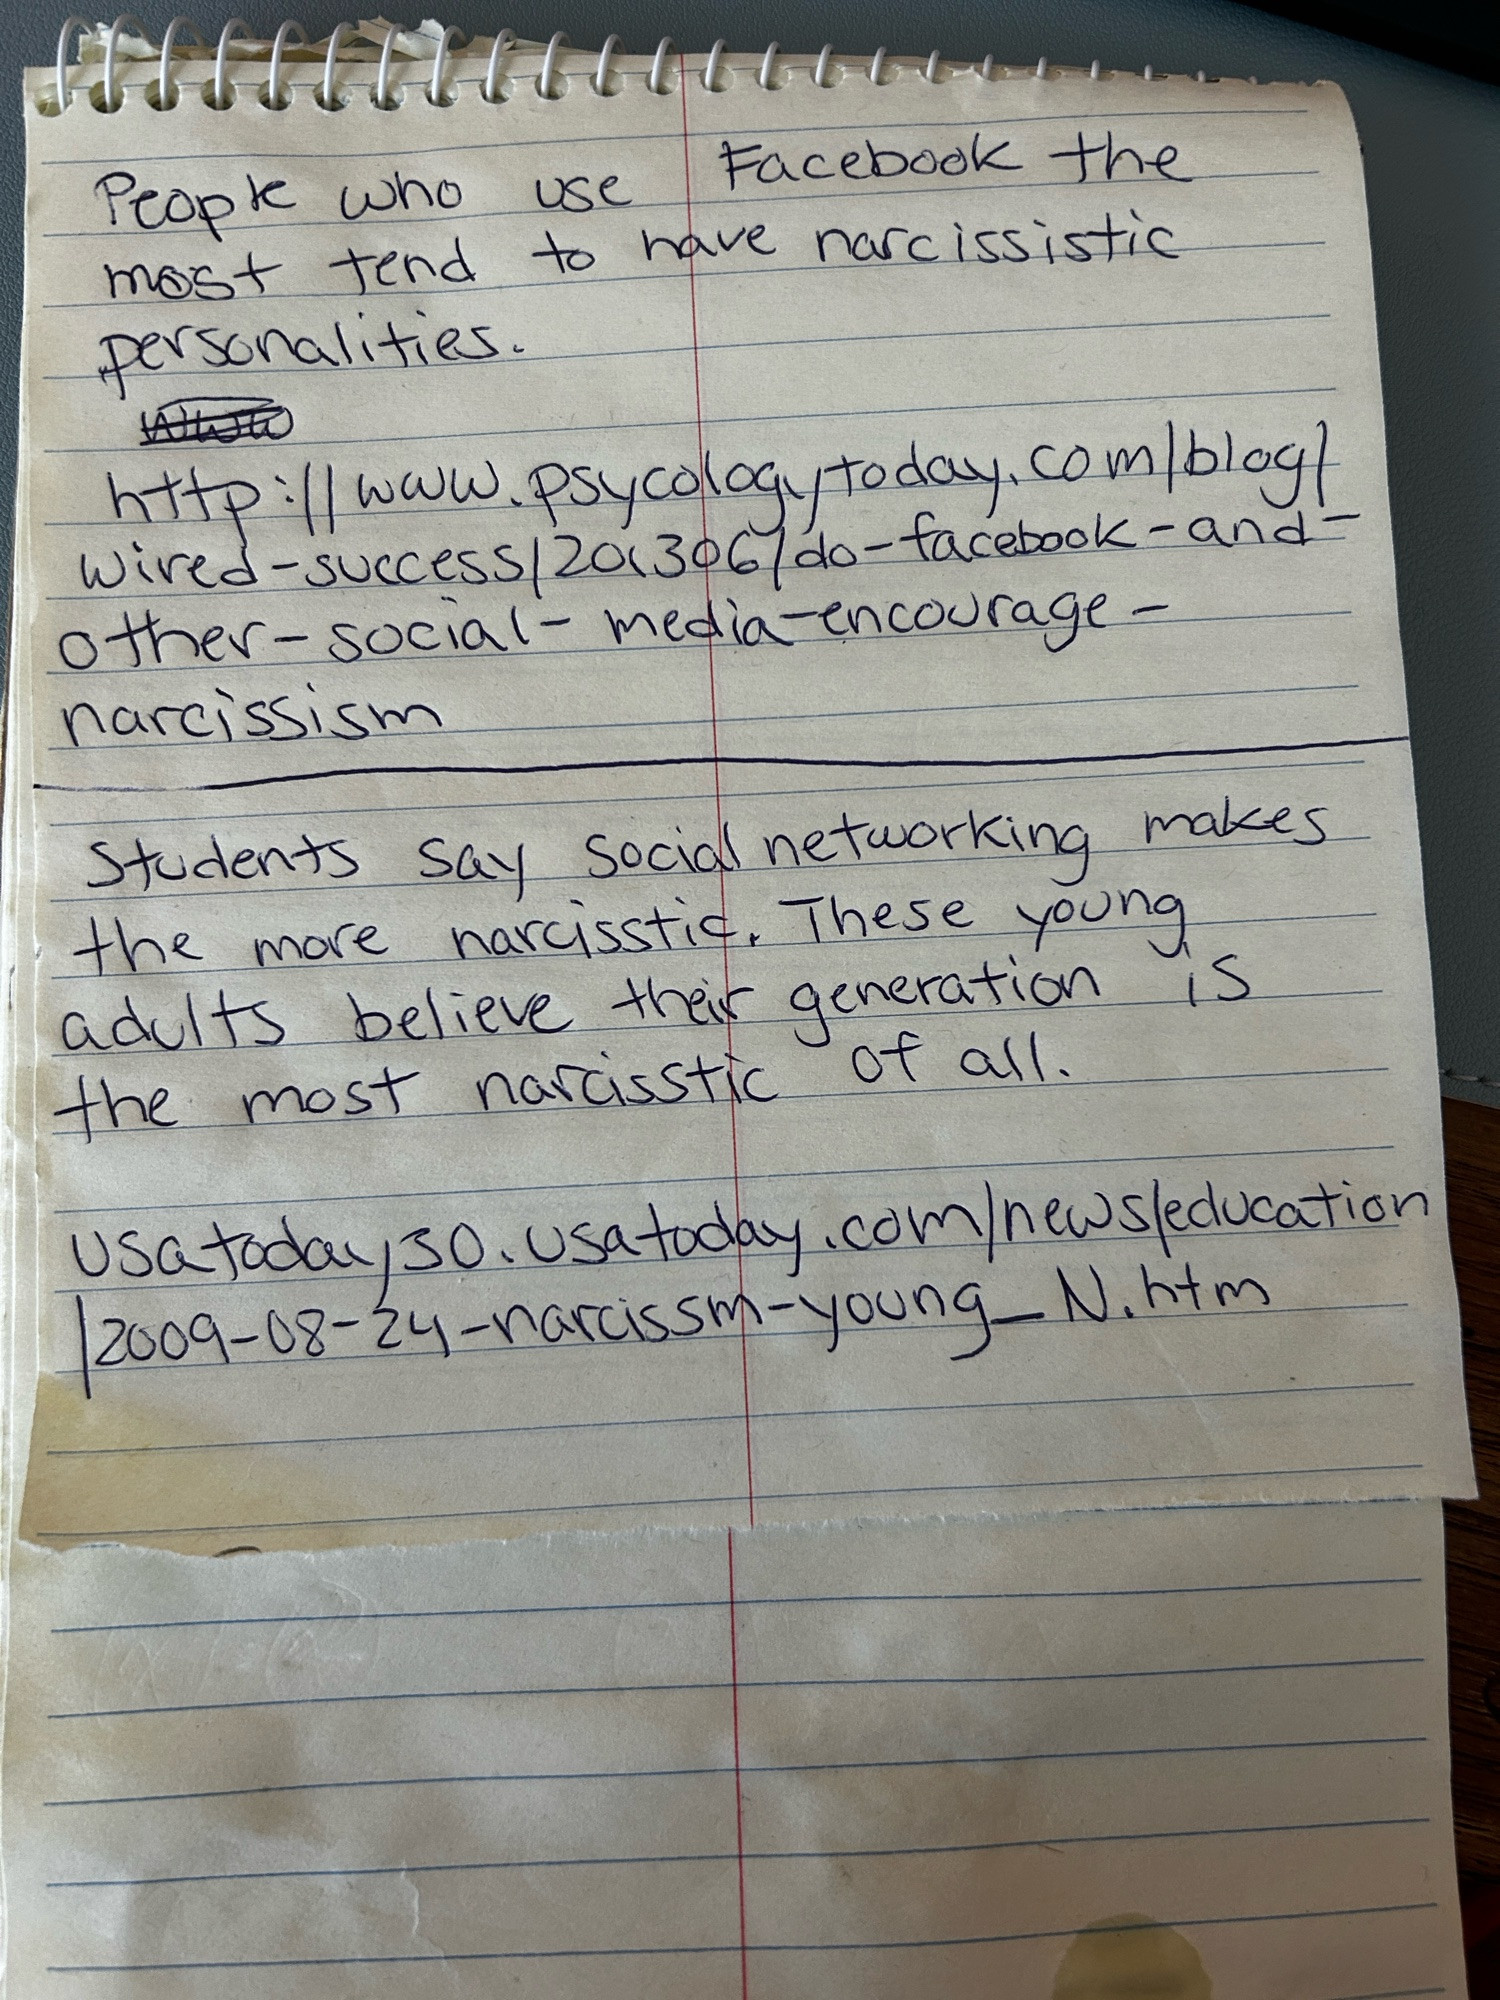 People who use Facebook the
most tend to have narcissistic
personalities.
www
http://www.psycologytoday.com/blog/
wired-success/201306/do-facebook-and-
other-social-media-encourage-
narcissism
Students say social networking makes
the more narcisstic. These young
adults believe their generation is
the most narcisstic of all.
usatoday30.usatoday.com/news/education
/2009-08-24-narcissm-young_N.htm